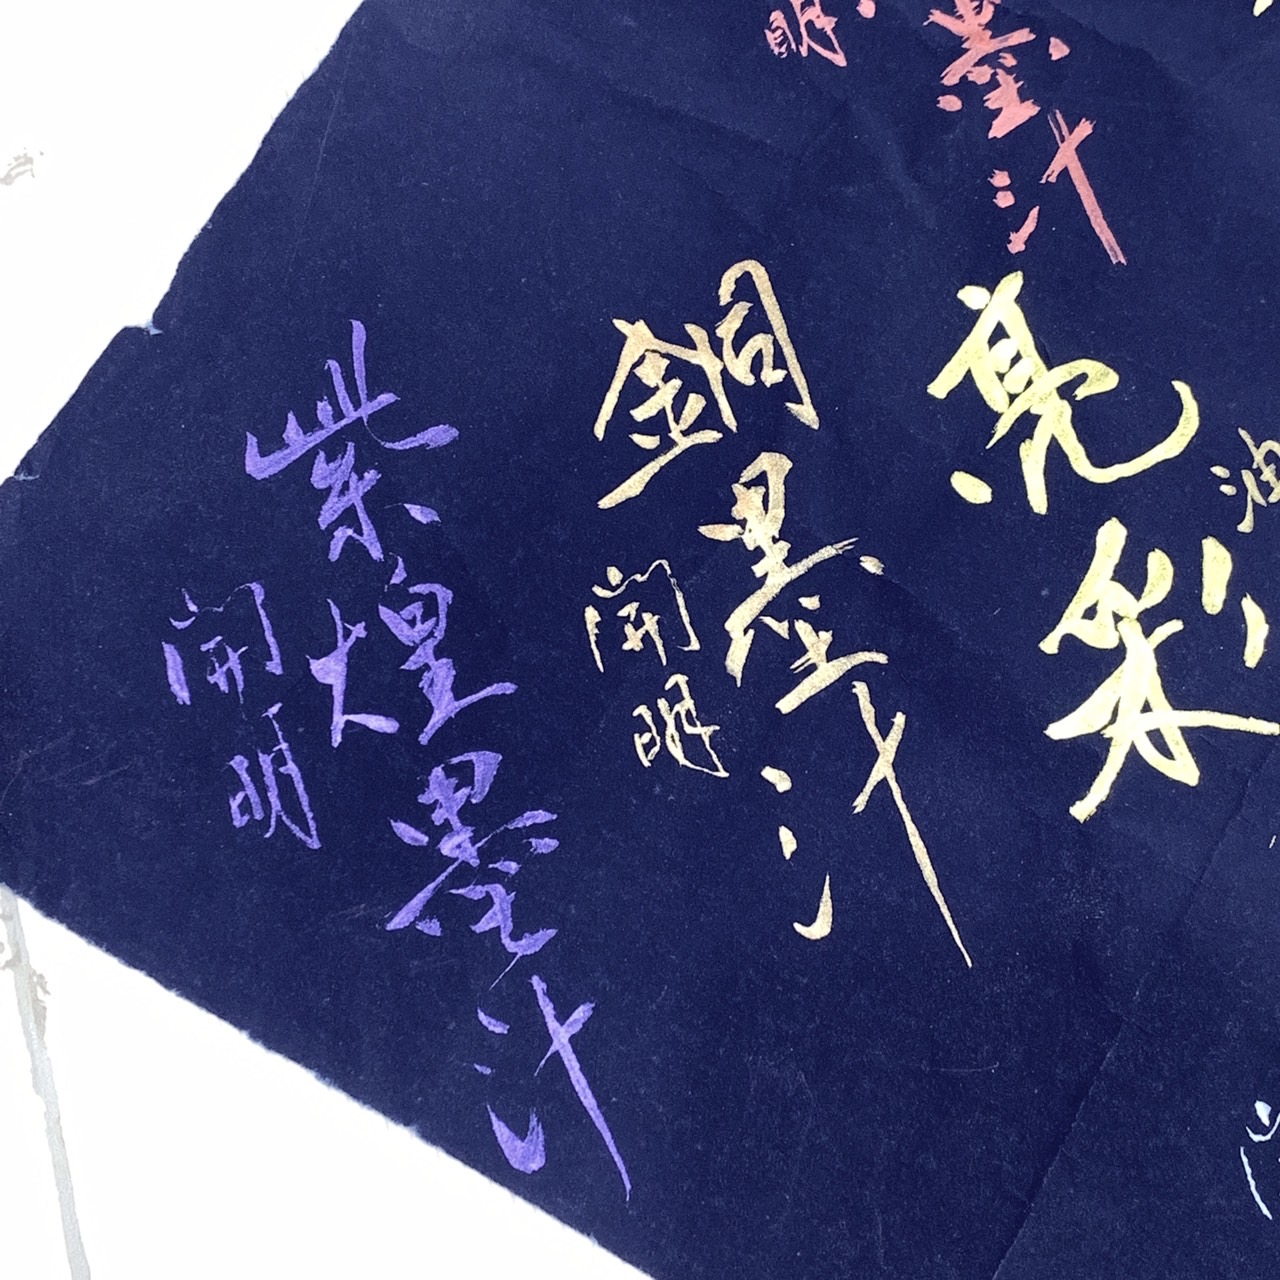 墨汁
明
亮彩
油
銅墨汁
開明
紫煌墨汁
開明